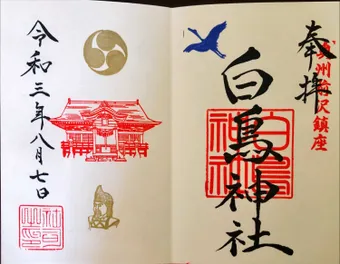 奉拝
州 沢鎮座
白鳥神社
白鳥神社
令和三年八月七日